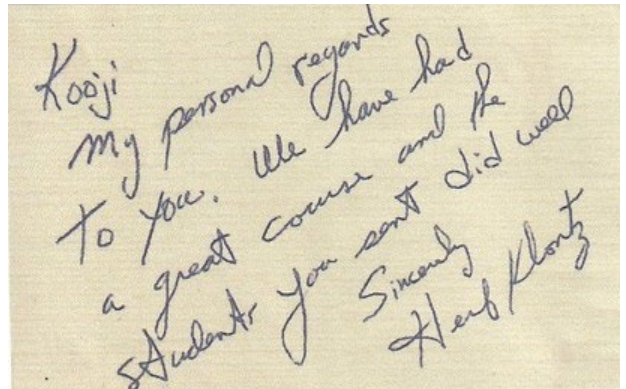 Kooji
My personal regards
to you. We have had
a great course and the
students you sent did well
Sincerely
Herb Klontz